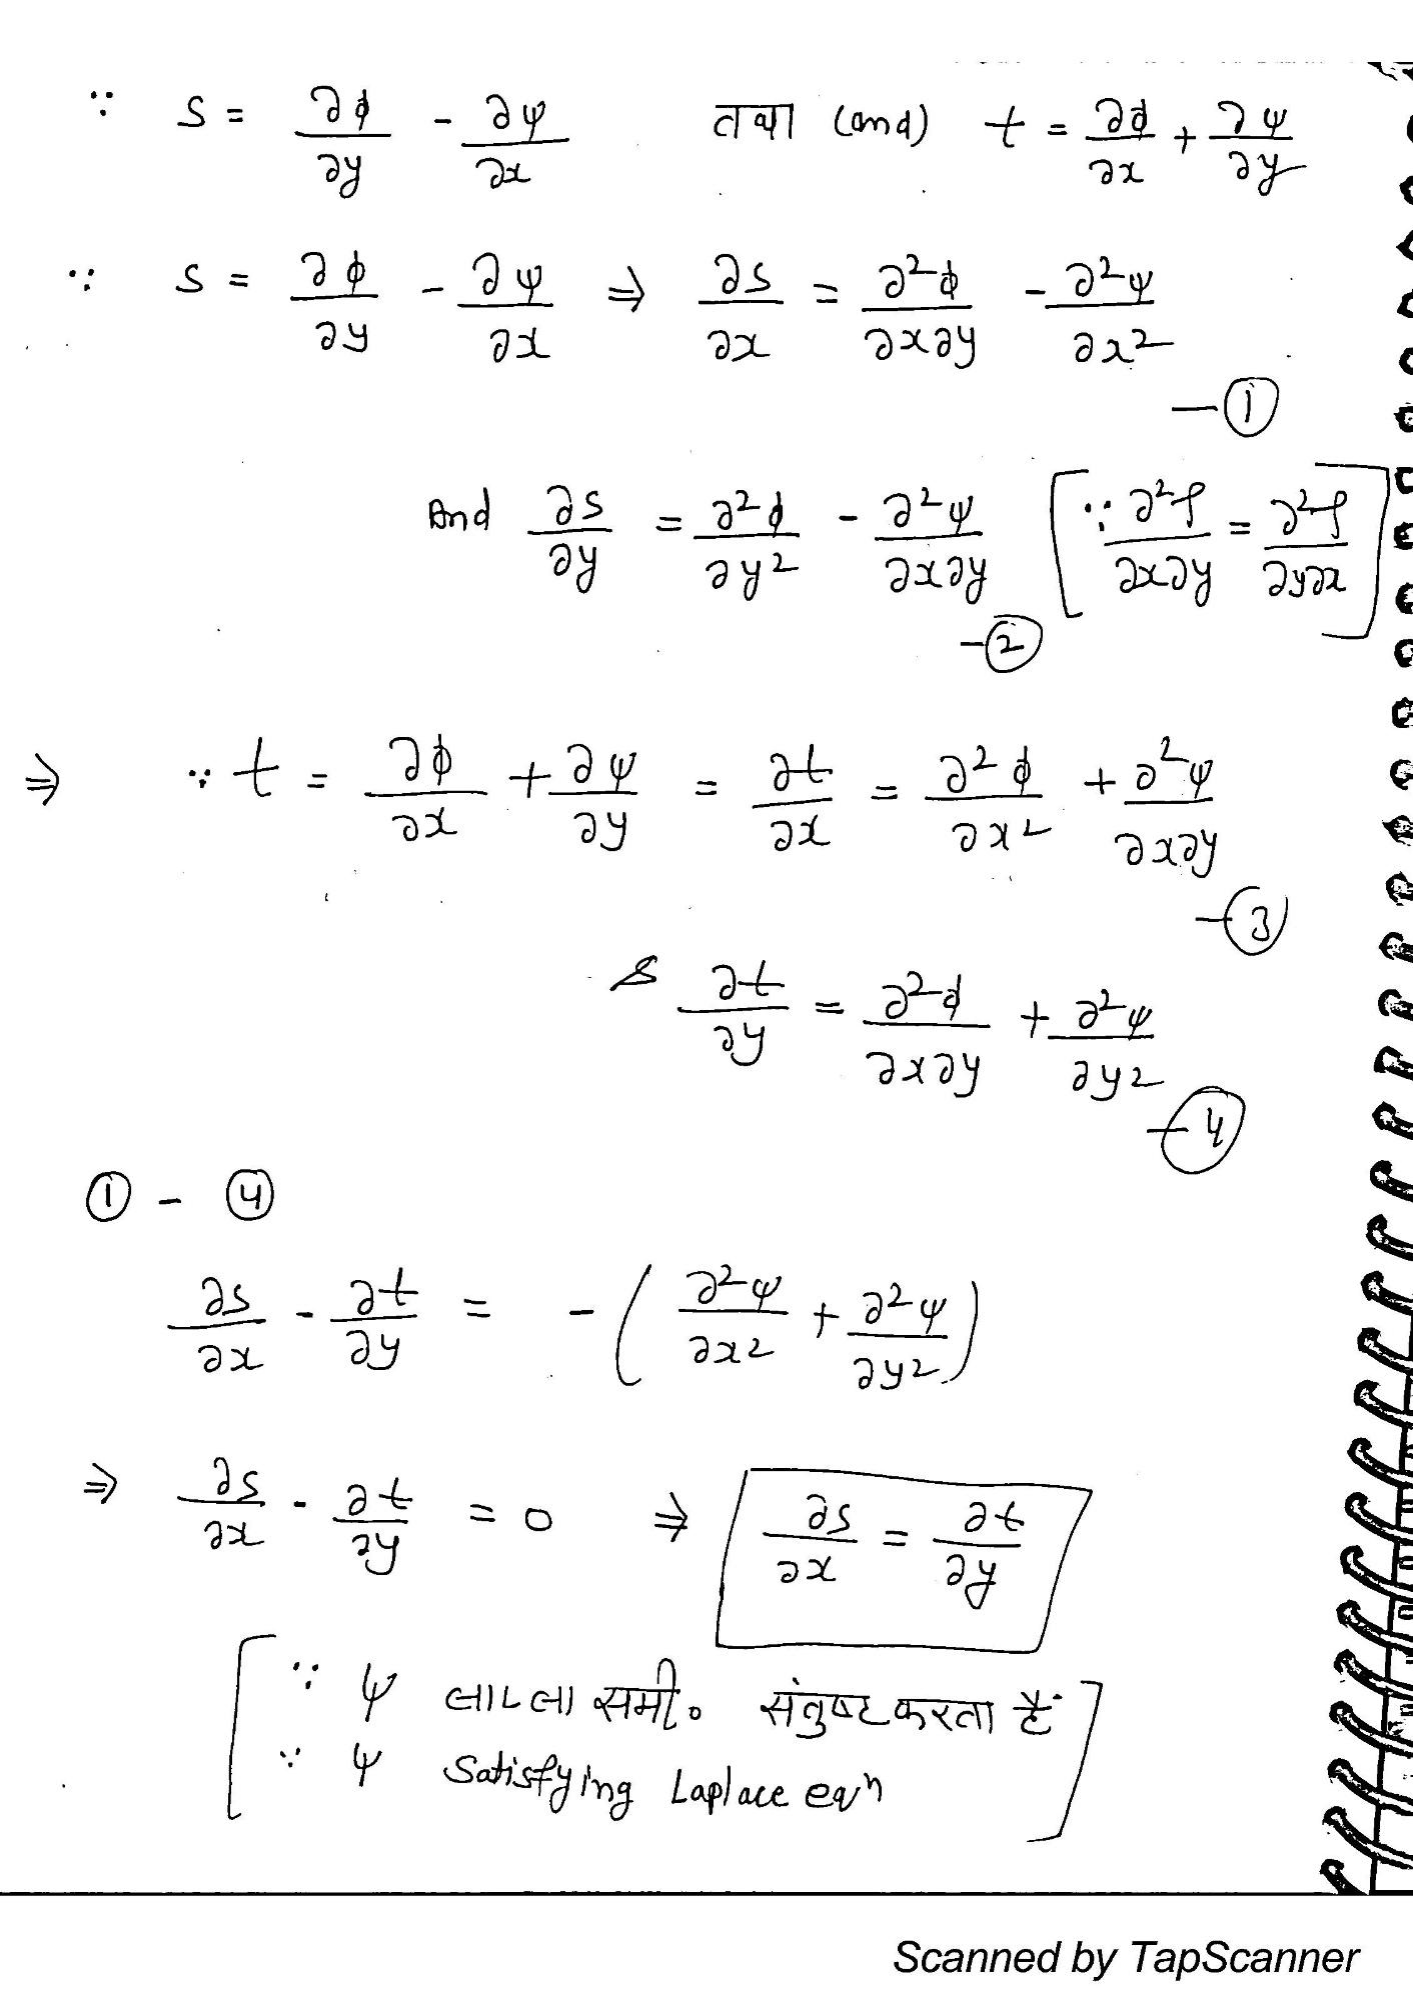 ∵ S = ∂ϕ/∂y - ∂ψ/∂x तथा (and) t = ∂ϕ/∂x + ∂ψ/∂y
∵ S = ∂ϕ/∂y - ∂ψ/∂x ⇒ ∂S/∂x = ∂²ϕ/∂x∂y - ∂²ψ/∂x²
— ①
And ∂S/∂y = ∂²ϕ/∂y² - ∂²ψ/∂x∂y [∵ ∂²f/∂x∂y = ∂²f/∂y∂x]
— ②
⇒ ∵ t = ∂ϕ/∂x + ∂ψ/∂y = ∂t/∂x = ∂²ϕ/∂x² + ∂²ψ/∂x∂y
— ③
& ∂t/∂y = ∂²ϕ/∂x∂y + ∂²ψ/∂y²
— ④
① - ④
∂S/∂x - ∂t/∂y = - (∂²ψ/∂x² + ∂²ψ/∂y²)
⇒ ∂S/∂x - ∂t/∂y = 0 ⇒ ∂S/∂x = ∂t/∂y
[∵ ψ लाप्ला समी० संतुष्ट करता है
∵ ψ Satisfying Laplace eqⁿ]
Scanned by TapScanner